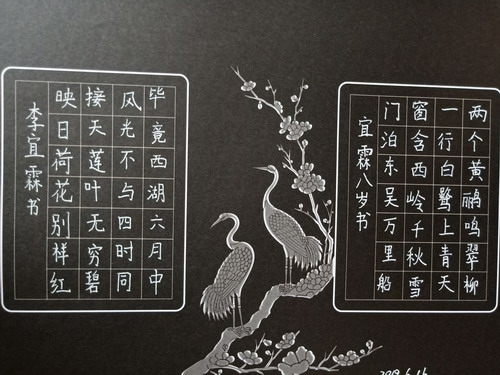 两个黄鹂鸣翠柳
一行白鹭上青天
窗含西岭千秋雪
门泊东吴万里船
宜霖八岁书
毕竟西湖六月中
风光不与四时同
接天莲叶无穷碧
映日荷花别样红
李宜霖书
2019.6.16